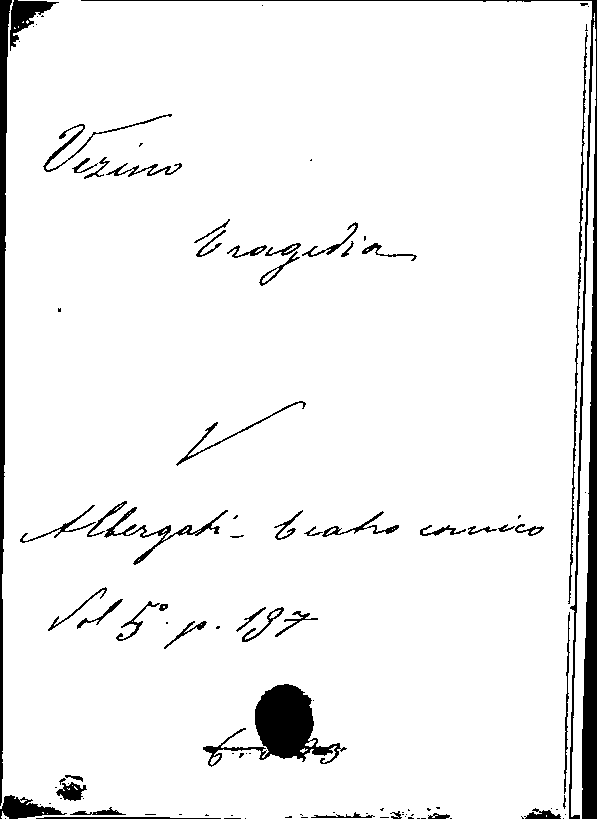 Vezino
tragedia
V
Albergati - teatro comico
Vol 5º. p. 197